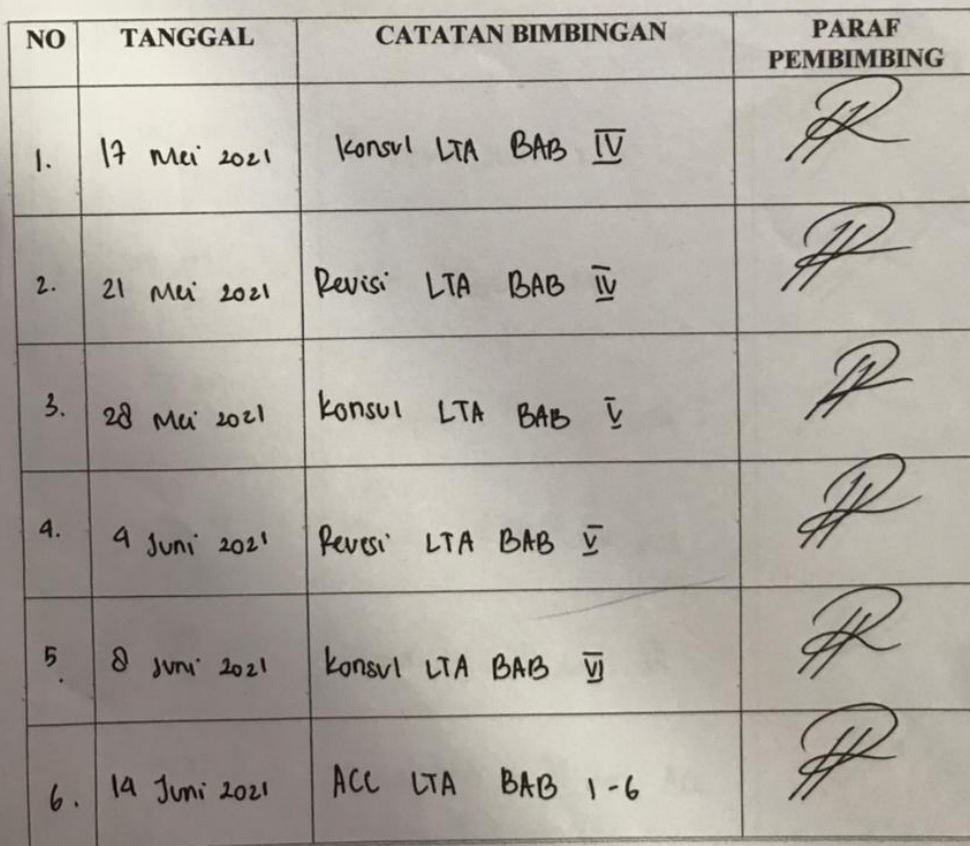 NO TANGGAL CATATAN BIMBINGAN PARAF PEMBIMBING
1. 17 Mei 2021 Konsul LTA BAB IV
2. 21 Mei 2021 Revisi LTA BAB IV
3. 28 Mei 2021 Konsul LTA BAB V
4. 4 Juni 2021 Revesi LTA BAB V
5. 8 Juni 2021 Konsul LTA BAB VI
6. 14 Juni 2021 ACC LTA BAB 1-6